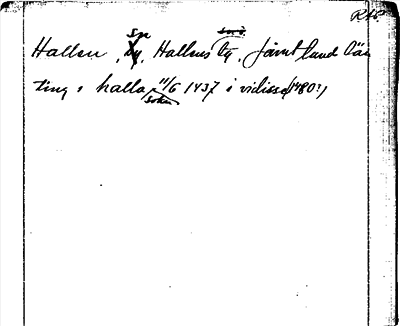 RAP
Hallen, sn, Hallens tg, Jämtland
ting i halla sokn 11/6 1437 i vidisse (1480?)